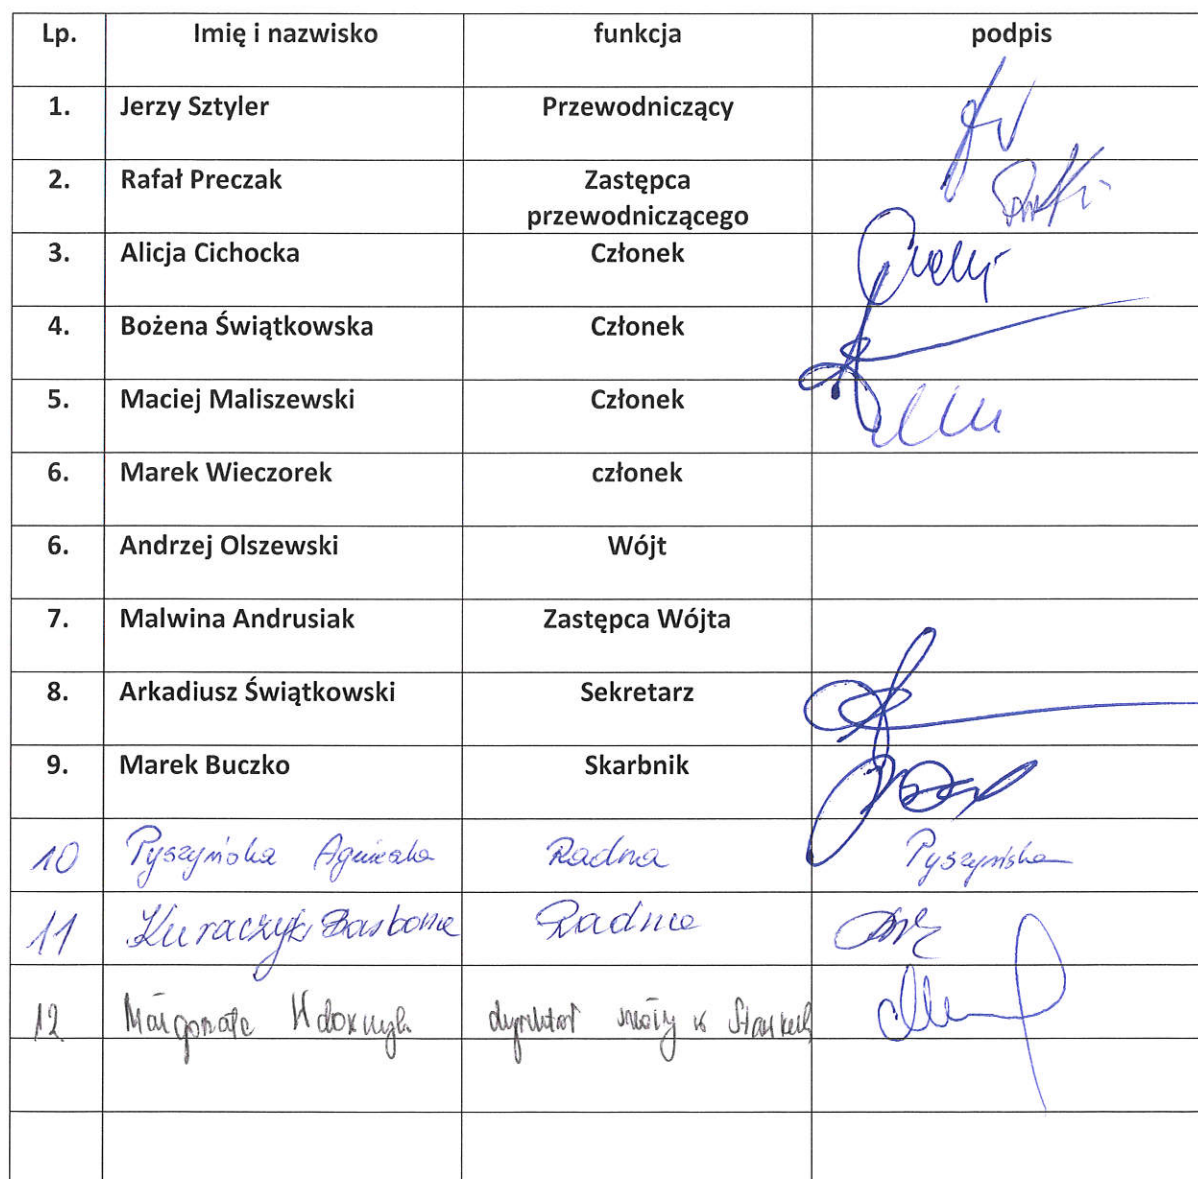 Lp. Imię i nazwisko funkcja podpis
1. Jerzy Sztyler Przewodniczący
2. Rafał Preczak Zastępca
przewodniczącego
3. Alicja Cichocka Członek
4. Bożena Świątkowska Członek
5. Maciej Maliszewski Członek
6. Marek Wieczorek członek
6. Andrzej Olszewski Wójt
7. Malwina Andrusiak Zastępca Wójta
8. Arkadiusz Świątkowski Sekretarz
9. Marek Buczko Skarbnik
10 Pyszyńska Agnieszka Radna Pyszyńska
11 Kuraczyk Radna
12 dyrektor w